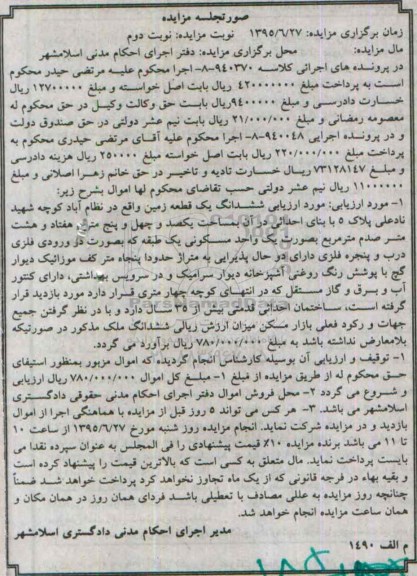 صورتجلسه مزایده
زمان برگزاری مزایده: ۱۳۹۵/۶/۲۷ نوبت مزایده: نوبت دوم
مال مزایده: محل برگزاری مزایده: دفتر اجرای احکام مدنی اسلامشهر
در پرونده های اجرائی کلاسه ۹۴۰۳۷۰-۸- اجرا محکوم علیه مرتضی حیدر محکوم
است به پرداخت مبلغ ۴۲۰۰۰۰۰۰۰ ریال بابت اصل خواسته و مبلغ ۱۲۷۰۰۰۰۰ ریال
خسارت دادرسی و مبلغ ۹۴۰۰۰۰۰ ریال بابست حق وکالت وکیل در حق محکوم له
معصومه رمضانی و مبلغ ۲۱/۰۰۰/۰۰۰ ریال بابت نیم عشر دولتی در حق صندوق دولت
و در پرونده اجرایی ۹۴۰۰۴۸-۸- اجرا محکوم علیه آقای مرتضی حیدری محکوم به
پرداخت مبلغ ۲۲۰/۰۰۰/۰۰۰ ریال بابت اصل خواسته مبلغ ۲۵۰۰۰۰ ریال هزینه دادرسی
و مبلغ ۷۳۱۲۸۱۴۷ ریال خسارت تادیه و تاخیر در حق خانم زهرا اصلانی و مبلغ
۱۱۰۰۰۰۰۰ ریال نیم عشر دولتی حسب تقاضای محکوم لها اموال بشرح زیر:
۱- مورد ارزیابی: مورد ارزیابی ششدانگ یک قطعه زمین واقع در نظام آباد کوچه شهید
نادعلی پلاک ۵ با بنای احداثی در آن بمساحت یکصد و چهل و پنج متر و هفتاد و هشت
متر صدم مترمربع بصورت یک واحد مسکونی یک طبقه که بصورت در ورودی فلزی
درب و پنجره فلزی دارای دو حال پذیرایی به متراژ حدودا پنجاه متر کف موزائیک دیوار
گچ با پوشش رنگ روغنی آشپزخانه دیوار سرامیک و در سرویس بهداشتی، دارای کنتور
آب و برق و گاز مستقل که در انتهای کوچه چهار متری قرار دارد مورد بازدید قرار
گرفته است. ساختمان احداثی قدمتی بیش از ۳۵ سال دارد و با در نظر گرفتن جمیع
جهات و رکود فعلی بازار مسکن میزان ارزش ریالی ششدانگ ملک مذکور در صورتیکه
بلامعارض نداشته باشد به مبلغ ۷۸۰/۰۰۰/۰۰۰ ریال برآورد می گردد.
۱- توقیف و ارزیابی آن بوسیله کارشناس انجام گردیده که اموال مزبور بمنظور استیفای
حق محکوم له از طریق مزایده از مبلغ ۱- مبلغ کل اموال ۷۸۰/۰۰۰/۰۰۰ ریال ارزیابی
و شروع می گردد ۲- محل فروش اموال دفتر اجرای احکام مدنی حقوقی دادگستری
اسلامشهر می باشد. ۳- هر کس می تواند ۵ روز قبل از مزایده با هماهنگی اجرا از اموال
بازدید و در مزایده شرکت نماید. انجام مزایده روز شنبه مورخ ۱۳۹۵/۶/۲۷ از ساعت ۱۰
تا ۱۱ می باشد برنده مزایده ۱۰٪ قیمت پیشنهادی را فی المجلس به عنوان سپرده نقدا می
بایست پرداخت نماید. مال متعلق به کسی است که بالاترین قیمت را پیشنهاد کرده است
و بقیه بهاء در فرجه قانونی که از یک ماه تجاوز نخواهد کرد پرداخت خواهد شد ضمناً
چنانچه روز مزایده به عللی مصادف با تعطیلی باشد فردای همان روز در همان مکان و
همان ساعت مزایده انجام خواهد شد.
مدیر اجرای احکام مدنی دادگستری اسلامشهر
م الف ۱۴۹۰